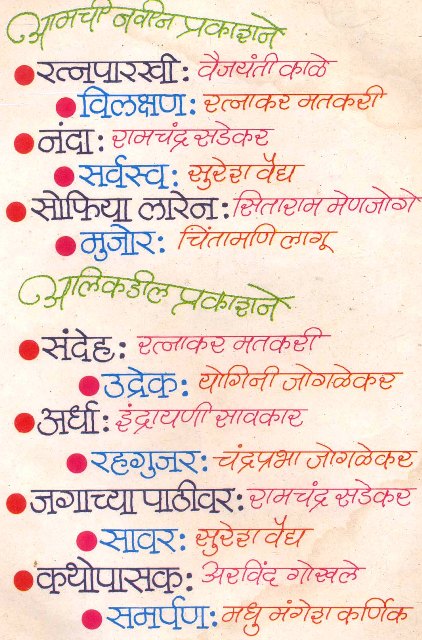 आमची नवीन प्रकाशने
रत्नपारखी: वैजयंती काळे
विलक्षण: रत्नाकर मतकरी
नंदा: रामचंद्र सडेकर
सर्वस्व: सुरेश वैद्य
सोफिया लारेन: सिताराम मेणजोगे
मुजोर: चिंतामणि लागू
अलिकडील प्रकाशने
संदेह: रत्नाकर मतकरी
उद्रेक: योगिनी जोगळेकर
अर्धा: इंद्रायणी सावकार
रहगुजर: चंद्रप्रभा जोगळेकर
जगाच्या पाठीवर: रामचंद्र सडेकर
सावर: सुरेश वैद्य
कथोपासक: अरविंद गोखले
समर्पण: मधु मंगेश कर्णिक